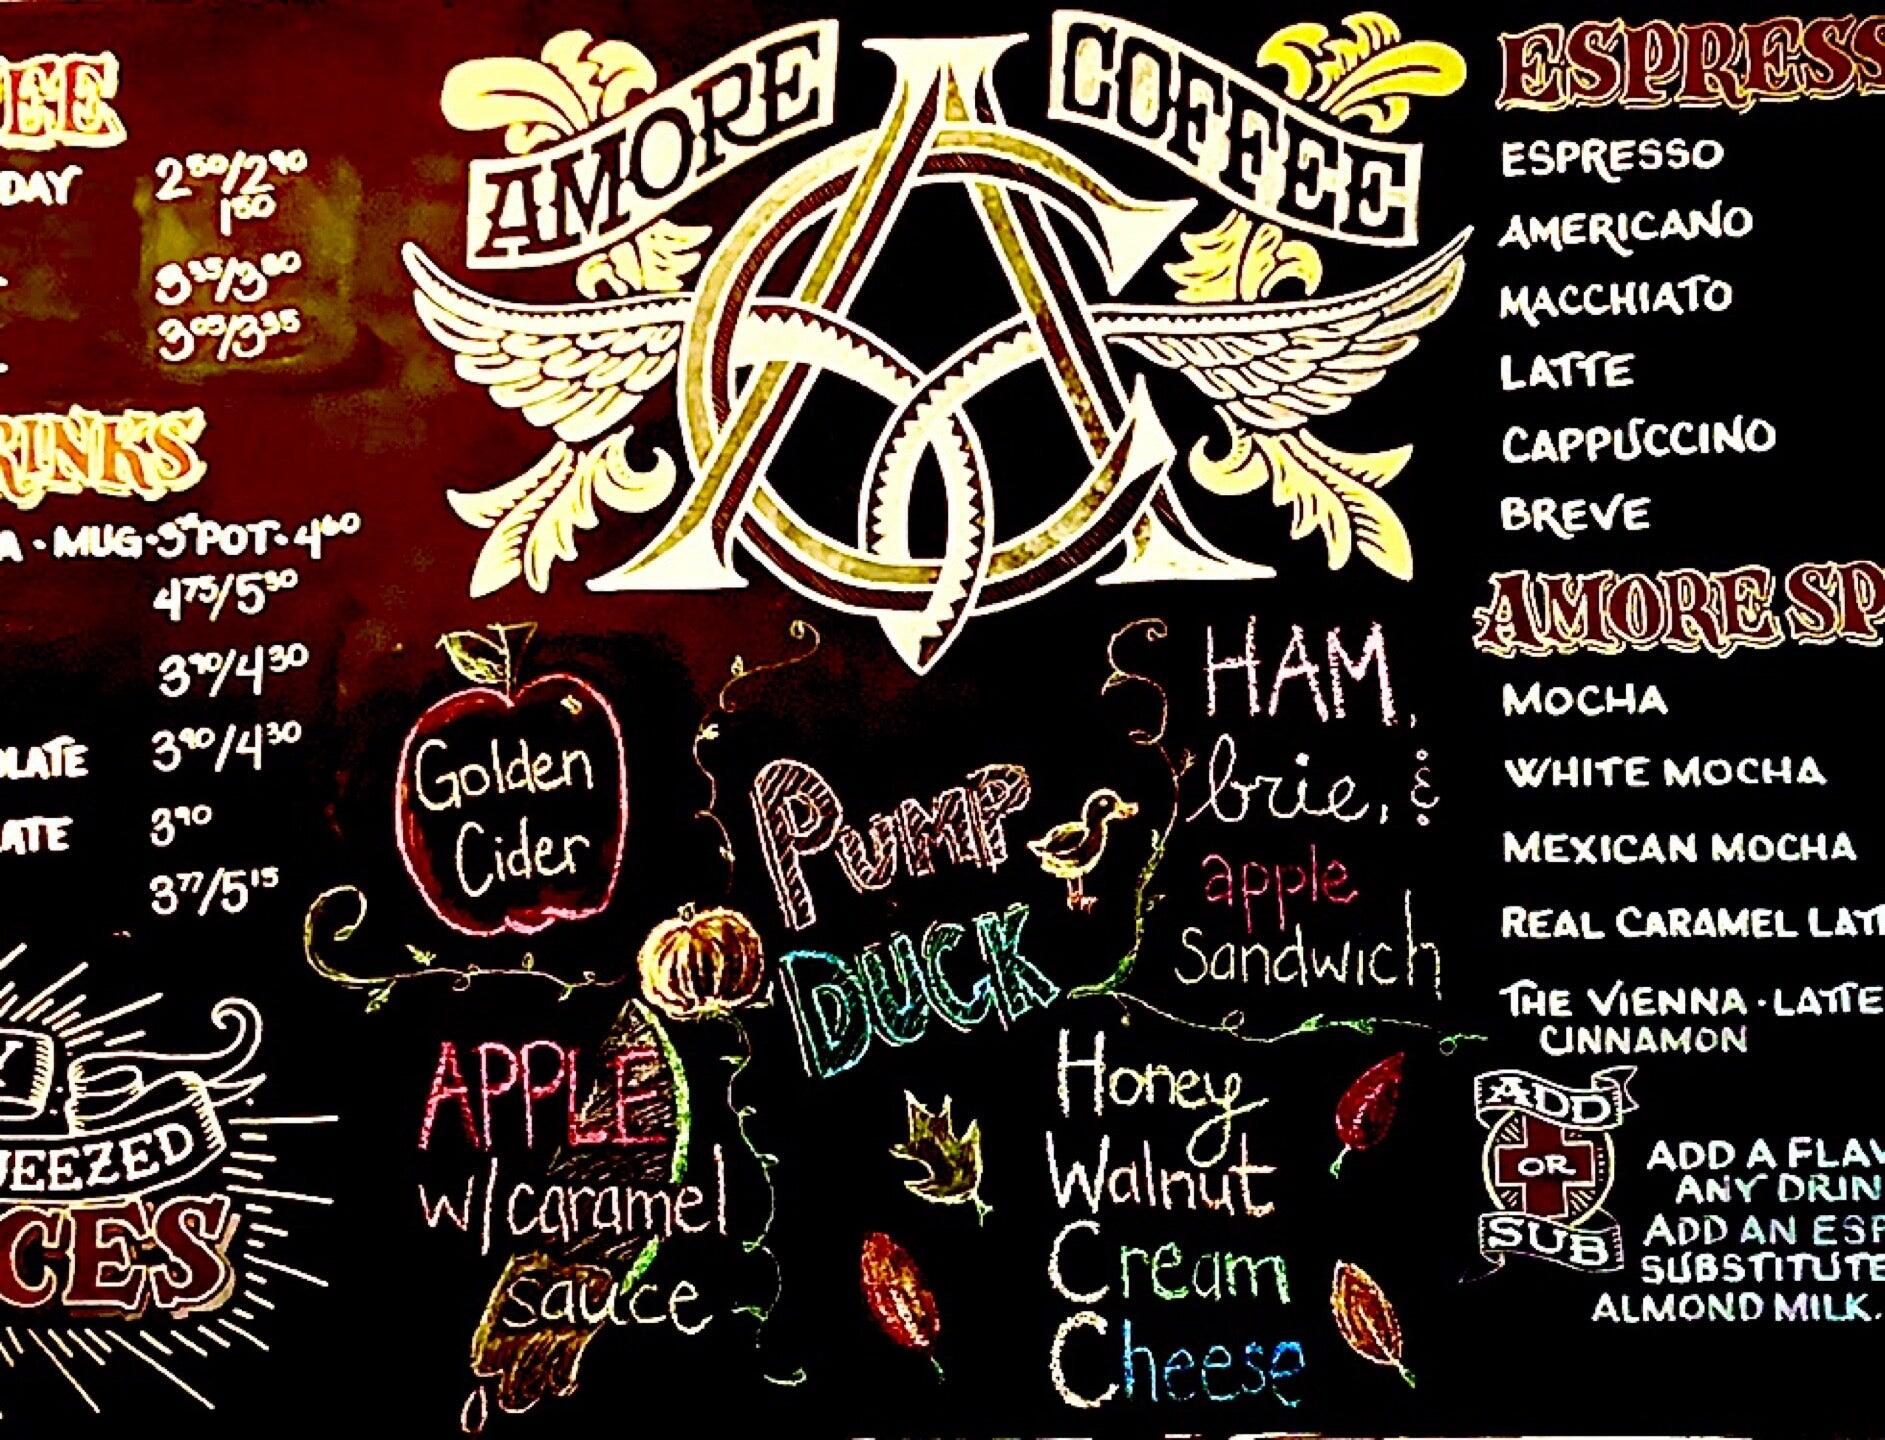 AMORE COFFEE
AC
EE
DAY 2⁵⁰/2⁹⁰
1⁵⁰
3³⁵/3⁸⁰
3⁰⁵/3³⁵
RINKS
A · MUG · 3⁹⁵ POT · 4⁶⁰
4⁷⁵/5³⁰
3⁹⁰/4³⁰
OLATE 3⁹⁰/4³⁰
ATE 3⁹⁰
3⁷⁷/5¹⁵
Y
UEEZED
CES
Golden
Cider
PUMP
DUCK
HAM,
brie, &
apple
Sandwich
APPLE
w/caramel
sauce
Honey
Walnut
Cream
Cheese
ESPRESS
ESPRESSO
AMERICANO
MACCHIATO
LATTE
CAPPUCCINO
BREVE
AMORE SP
MOCHA
WHITE MOCHA
MEXICAN MOCHA
REAL CARAMEL LATT
THE VIENNA · LATTE
CINNAMON
ADD
OR
SUB
ADD A FLAV
ANY DRIN
ADD AN ESP
SUBSTITUTE
ALMOND MILK.